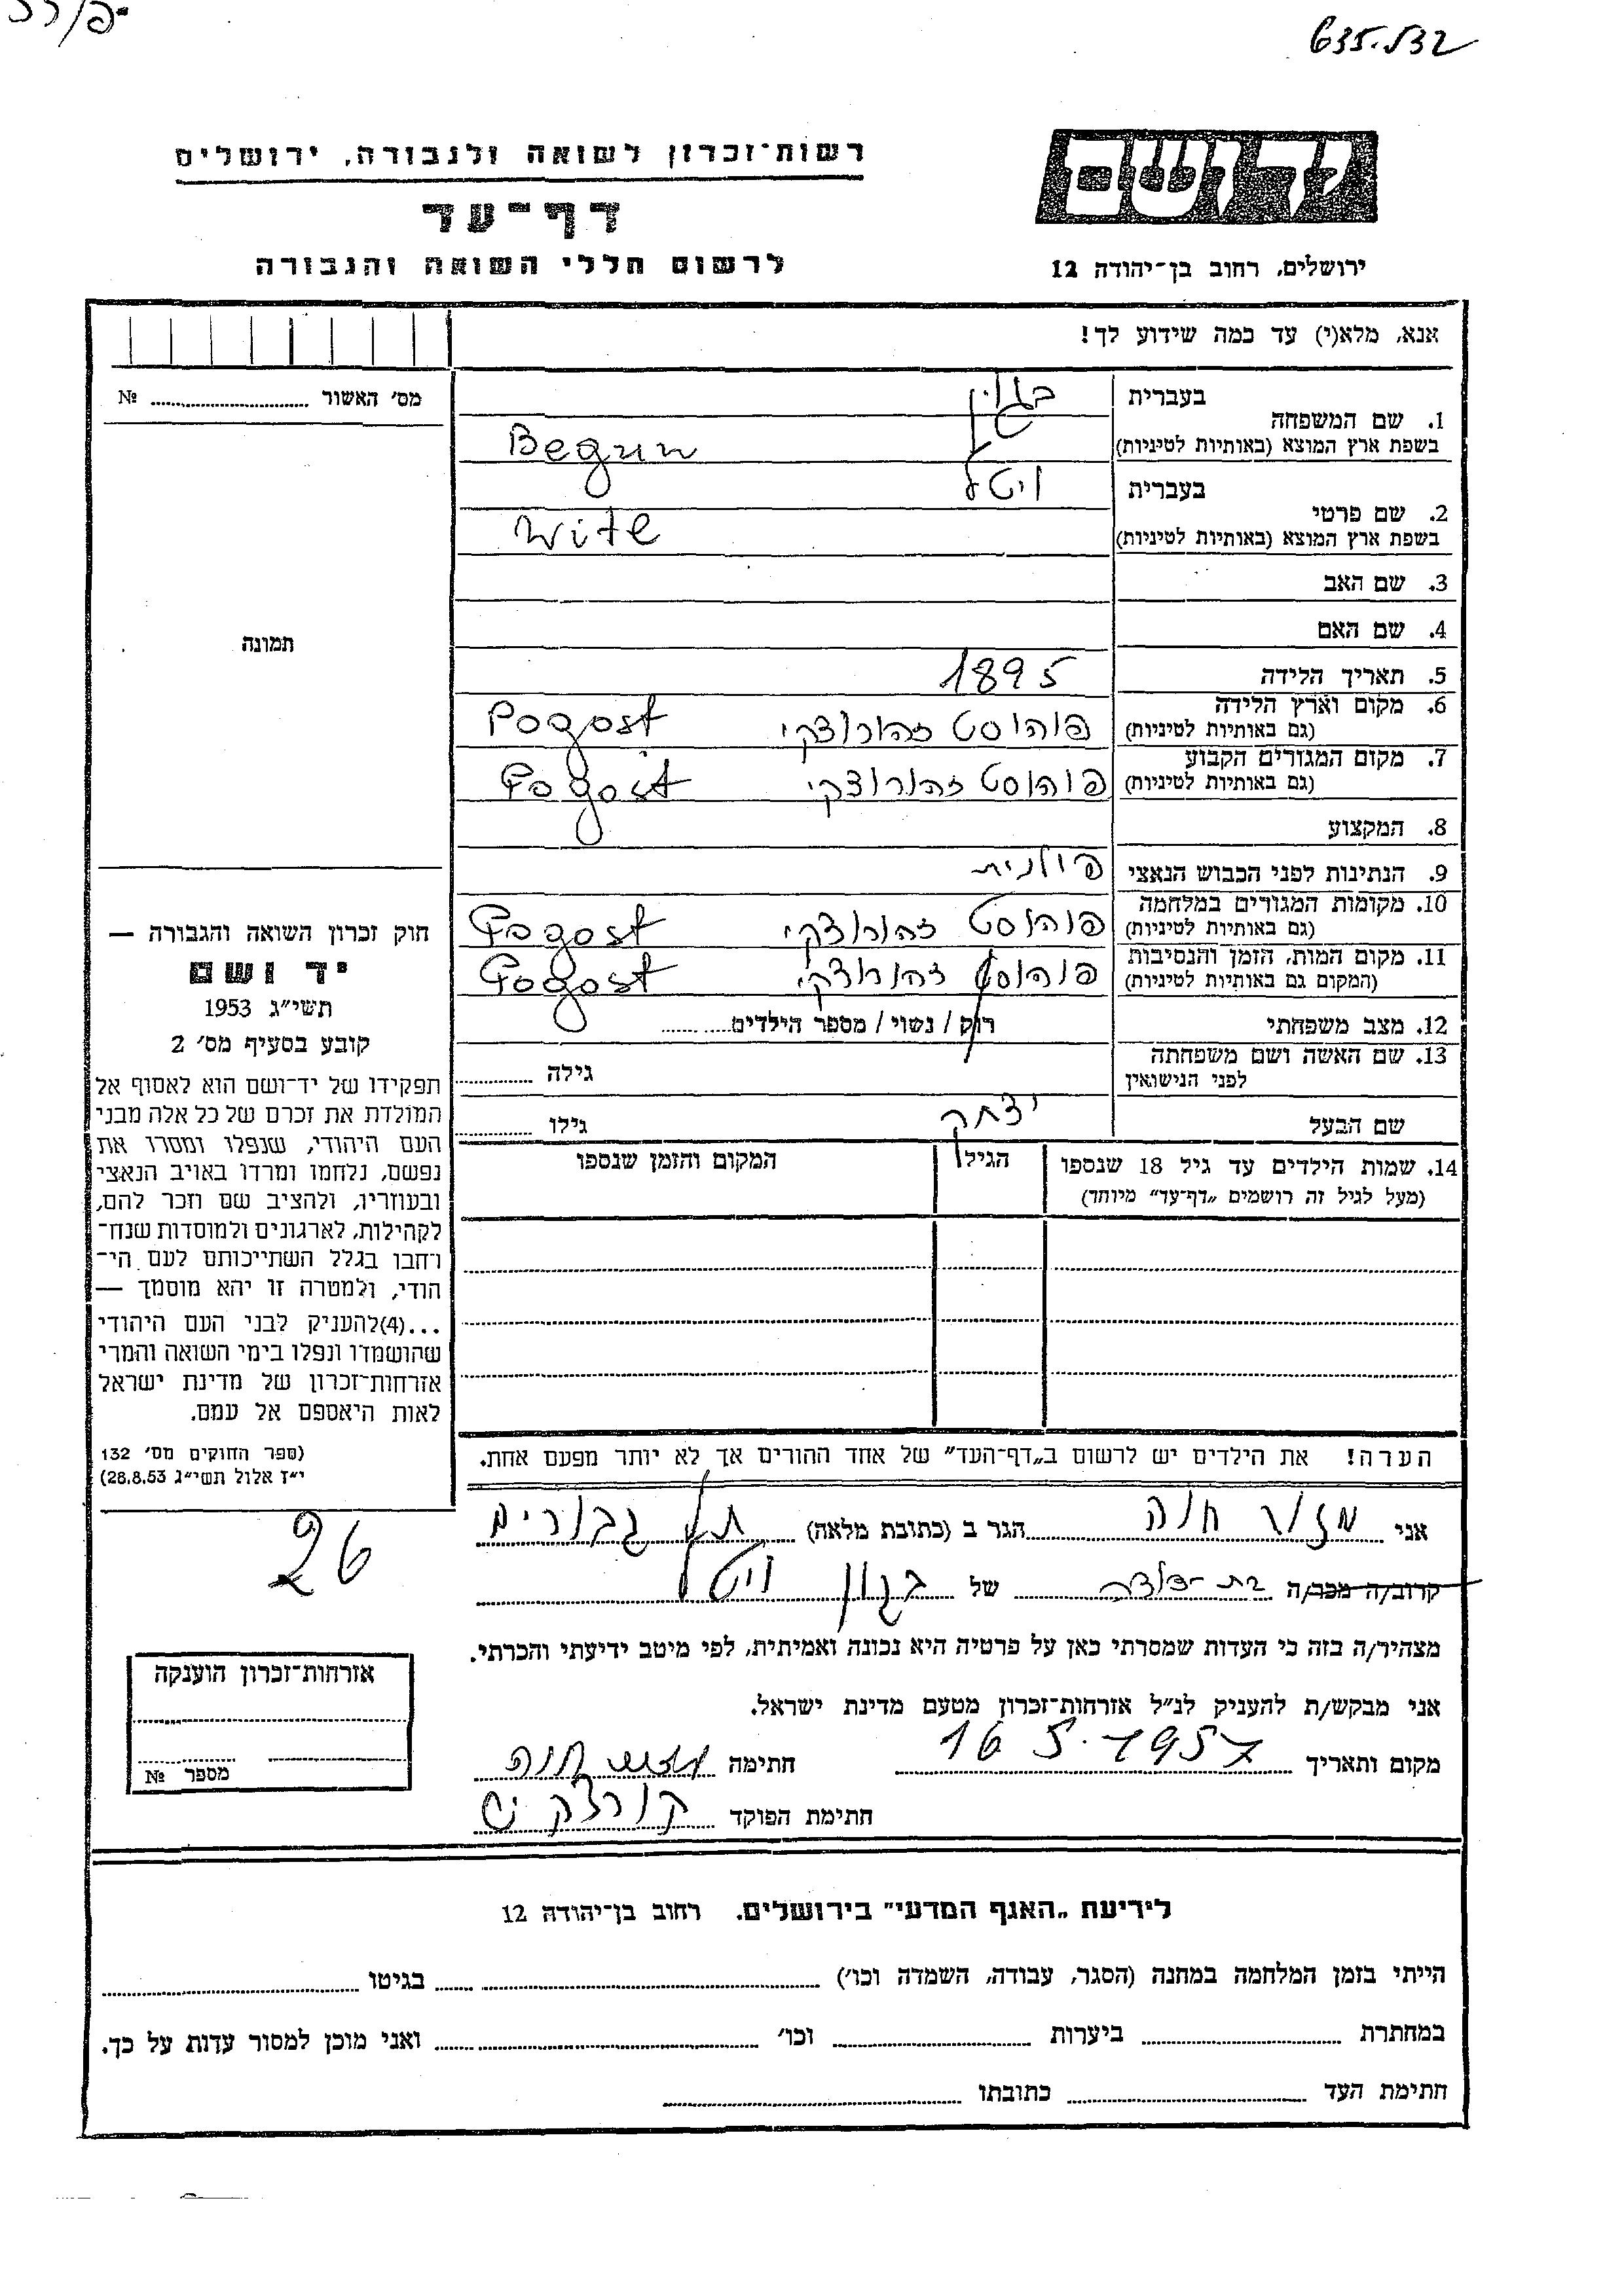 635.532
יד ושם
רשות־זכרון לשואה ולגבורה, ירושלים
דף־עד
ירושלים, רחוב בן־יהודה 12
לרשום חללי השואה והגבורה
אנא, מלא(י) עד כמה שידוע לך!
מס׳ האשור № 
1. שם המשפחה
בעברית בגון
בשפת ארץ המוצא (באותיות לטיניות) Begun
2. שם פרטי
בעברית ויטל
בשפת ארץ המוצא (באותיות לטיניות) Witel
3. שם האב
4. שם האם
תמונה
5. תאריך הלידה 1895
6. מקום וארץ הלידה
(גם באותיות לטיניות) פוהוסט זהורוצקי Pogost
7. מקום המגורים הקבוע
(גם באותיות לטיניות) פוהוסט זהורוצקי Pogost
8. המקצוע
9. הנתינות לפני הכבוש הנאצי פולנית
10. מקומות המגורים במלחמה
(גם באותיות לטיניות) פוהוסט זהורוצקי Pogost
11. מקום המות, הזמן והנסיבות
(המקום גם באותיות לטיניות) פוהוסט זהורוצקי Pogost
12. מצב משפחתי רוק / נשוי / מספר הילדים
13. שם האשה ושם משפחתה
לפני הנישואין גילה
שם הבעל יצחק גילו
14. שמות הילדים עד גיל 18 שנספו הגיל המקום והזמן שנספו
(מעל לגיל זה רושמים „דף־עד” מיוחד)
חוק זכרון השואה והגבורה —
יד ושם
תשי״ג 1953
קובע בסעיף מס׳ 2
תפקידו של יד־ושם הוא לאסוף אל
המולדת את זכרם של כל אלה מבני
העם היהודי, שנפלו ומסרו את
נפשם, נלחמו ומרדו באויב הנאצי
ובעוזריו, ולהציב שם וזכר להם,
לקהילות, לארגונים ולמוסדות שנח־
רחבו בגלל השתייכותם לעם הי־
הודי, ולמטרה זו יהא מוסמך —
...(4)להעניק לבני העם היהודי
שהושמדו ונפלו בימי השואה והמרי
אזרחות־זכרון של מדינת ישראל
לאות היאספם אל עמם.
(ספר החוקים מס׳ 132
י״ז אלול תשי״ג 28.8.53)
הערה! את הילדים יש לרשום ב„דף־העד” של אחד ההורים אך לא יותר מפעם אחת.
אני מזור חוה הגר ב (כתובת מלאה) תל גבורים
26
קרוב/ה מכר/ה בת-דודה של בגון ויטל
מצהיר/ה בזה כי העדות שמסרתי כאן על פרטיה היא נכונה ואמיתית, לפי מיטב ידיעתי והכרתי.
אני מבקש/ת להעניק לנ״ל אזרחות־זכרון מטעם מדינת ישראל.
מקום ותאריך 16 5. 1957 חתימה
חתימת הפוקד
אזרחות־זכרון הוענקה
מספר №
לידיעת „האגף המדעי” בירושלים. רחוב בן־יהודה 12
הייתי בזמן המלחמה במחנה (הסגר, עבודה, השמדה וכו׳) בגיטו
במחתרת ביערות וכו׳ ואני מוכן למסור עדות על כך.
חתימת העד כתובתו